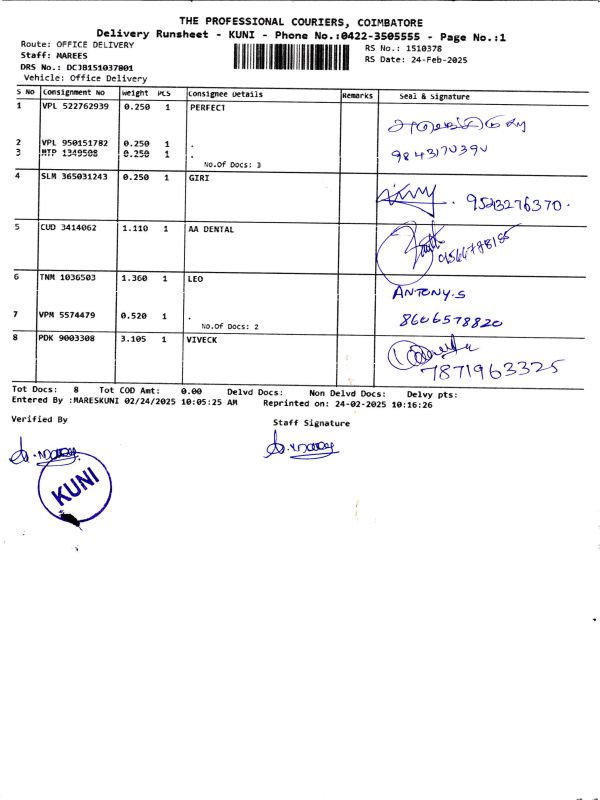 THE PROFESSIONAL COURIERS, COIMBATORE
Delivery Runsheet - KUNI - Phone No.:0422-3505555 - Page No.:1
Route: OFFICE DELIVERY RS No.: 1510378
Staff: MAREES RS Date: 24-Feb-2025
DRS No.: DCJB151037801
Vehicle: Office Delivery
S No Consignment No Weight PCS Consignee Details Remarks Seal & Signature
1 VPL 522762939 0.250 1 PERFECT
2 VPL 950151782 0.250 1 .
9843170390
3 MTP 1349508 0.250 1 .
No.Of Docs: 3
4 SLM 365031243 0.250 1 GIRI
9523276370.
5 CUD 3414062 1.110 1 AA DENTAL
6 TNM 1036503 1.360 1 LEO
ANTONY.S
7 VPM 5574479 0.520 1 .
8606578820
No.Of Docs: 2
8 PDK 9003308 3.105 1 VIVECK
7871963325
Tot Docs: 8 Tot COD Amt: 0.00 Delvd Docs: Non Delvd Docs: Delvy pts:
Entered By :MARESKUNI 02/24/2025 10:05:25 AM Reprinted on: 24-02-2025 10:16:26
Verified By Staff Signature
KUNI